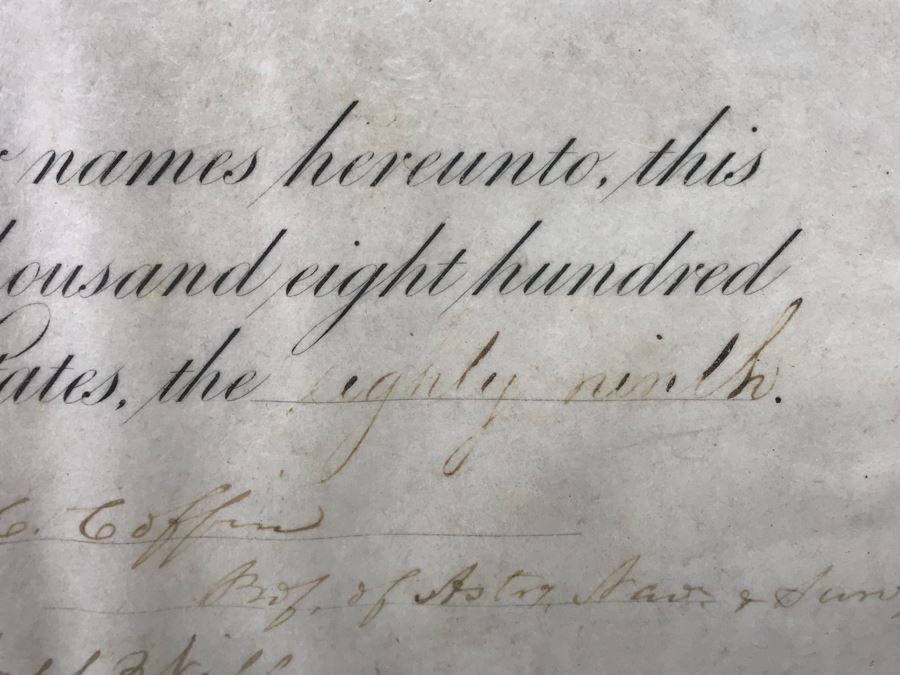 names hereunto, this
housand eight hundred
tates, the eighty ninth.
C. Coffin
Prof. of Astry. Nav. & Surv